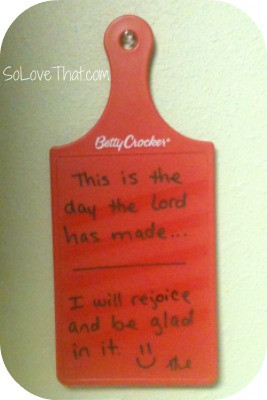 SoLoveThat.com
Betty Crocker®
This is the
day the Lord
has made...
I will rejoice
and be glad
in it. :)